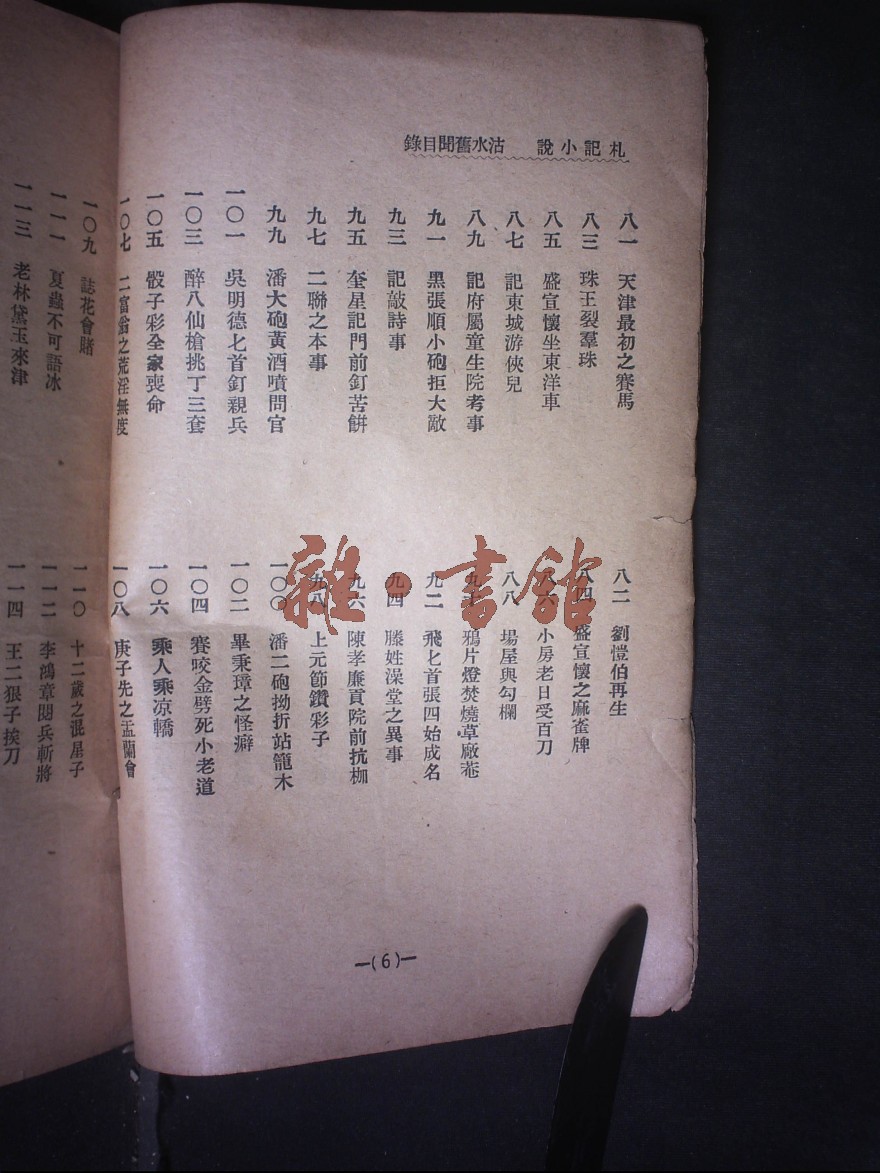 札記小說　沽水舊聞目錄
八一　天津最初之賽馬
八二　劉愷伯再生
八三　珠王裂羣珠
八四　盛宣懷之麻雀牌
八五　盛宣懷坐東洋車
八六　小房老日受百刀
八七　記東城游俠兒
八八　場屋與勾欄
八九　記府屬童生院考事
九十　鴉片燈焚燒草廠菴
九一　黑張順小砲拒大敵
九二　飛七首張四始成名
九三　記敲詩事
九四　滕姓澡堂之異事
九五　奎星記門前釘苦餅
九六　陳孝廉貢院前抗枷
九七　二聯之本事
九八　上元節鑽彩子
九九　潘大砲黃酒噴問官
一〇〇　潘二砲拗折站籠木
一〇一　吳明德七首釘親兵
一〇二　畢秉璋之怪癖
一〇三　醉八仙槍挑丁三套
一〇四　賽咬金劈死小老道
一〇五　骰子彩全家喪命
一〇六　乘人乘凉轎
一〇七　二富翁之荒淫無度
一〇八　庚子先之盂蘭會
一〇九　誌花會賭
一一〇　十二歲之混星子
一一一　夏蟲不可語冰
一一二　李鴻章閱兵斬將
一一三　老林黛玉來津
一一四　王二狠子挨刀
—(6)—
雜·書館